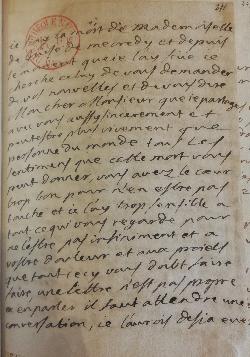 ie sceu la mort de mademoiselle
de du mecredy et depuis
le moment que ie lay sceu ie
cherche celuy de vous demander
de vos nouvelles et de vous dire
Mon cher Monsieur que ie partage
avec vous aussy sincerement et
peutestre plus vivement que
personne du monde tous les
sentimens que cette mort vous
peut donner, vous avez le cœur
trop bon pour n'en estre pas
touché et ie suis trop sensible a
tout ce qui vous regarde pour
ne l'estre pas infiniment et a
vostre douleur et aux
que tout cecy vous doibt faire
faire, une lettre n'est pas propre
a en parler il faut attendre une
conversation, ie l'aurois desia eue